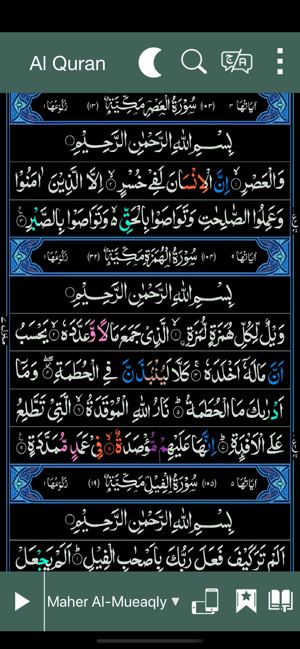 Al Quran
اٰیَاتُهَا ٣ (١٠٣) سُوْرَةُ الْعَصْرِ مَكِّیَّةٌ (١٣) رُكُوْعُهَا ١
بِسْمِ اللّٰهِ الرَّحْمٰنِ الرَّحِیْمِ
وَ الْعَصْرِ ۙ۝ اِنَّ الْاِنْسَانَ لَفِیْ خُسْرٍ ۙ۝ اِلَّا الَّذِیْنَ اٰمَنُوْا
وَ عَمِلُوا الصّٰلِحٰتِ وَ تَوَاصَوْا بِالْحَقِّ ۙ۬ وَ تَوَاصَوْا بِالصَّبْرِ ۝
اٰیَاتُهَا ٩ (١٠٤) سُوْرَةُ الْهُمَزَةِ مَكِّیَّةٌ (٣٢) رُكُوْعُهَا ١
بِسْمِ اللّٰهِ الرَّحْمٰنِ الرَّحِیْمِ
وَیْلٌ لِّكُلِّ هُمَزَةٍ لُّمَزَةِ ۙ۝ الَّذِیْ جَمَعَ مَالًا وَّ عَدَّدَهٗ ۙ۝ یَحْسَبُ
اَنَّ مَالَهٗۤ اَخْلَدَهٗ ۚ۝ كَلَّا لَیُنْۢبَذَنَّ فِی الْحُطَمَةِ ؗۖ۝ وَ مَاۤ
اَدْرٰىكَ مَا الْحُطَمَةُ ؕ۝ نَارُ اللّٰهِ الْمُوْقَدَةُ ۙ۝ الَّتِیْ تَطَّلِعُ
عَلَی الْاَفْـِٕدَةِ ؕ۝ اِنَّهَا عَلَیْهِمْ مُّؤْصَدَةٌ ۙ۝ فِیْ عَمَدٍ مُّمَدَّدَةٍ ۝
اٰیَاتُهَا ٥ (١٠٥) سُوْرَةُ الْفِیْلِ مَكِّیَّةٌ (١٩) رُكُوْعُهَا ١
بِسْمِ اللّٰهِ الرَّحْمٰنِ الرَّحِیْمِ
اَلَمْ تَرَ كَیْفَ فَعَلَ رَبُّكَ بِاَصْحٰبِ الْفِیْلِ ؕ۝ اَلَمْ یَجْعَلْ
Maher Al-Mueaqly